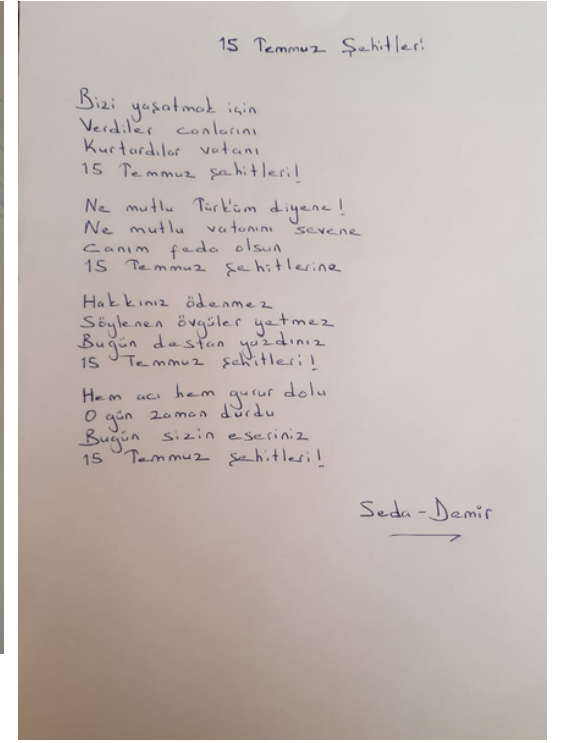 15 Temmuz Şehitleri
Bizi yaşatmak için
Verdiler canlarını
Kurtardılar vatanı
15 Temmuz şehitleri!
Ne mutlu Türk'üm diyene!
Ne mutlu vatanını sevene
Canım feda olsun
15 Temmuz şehitlerine
Hakkınız ödenmez
Söylenen övgüler yetmez
Bugün destan yazdınız
15 Temmuz şehitleri!
Hem acı hem gurur dolu
O gün zaman durdu
Bugün sizin eseriniz
15 Temmuz şehitleri!
Seda-Demir